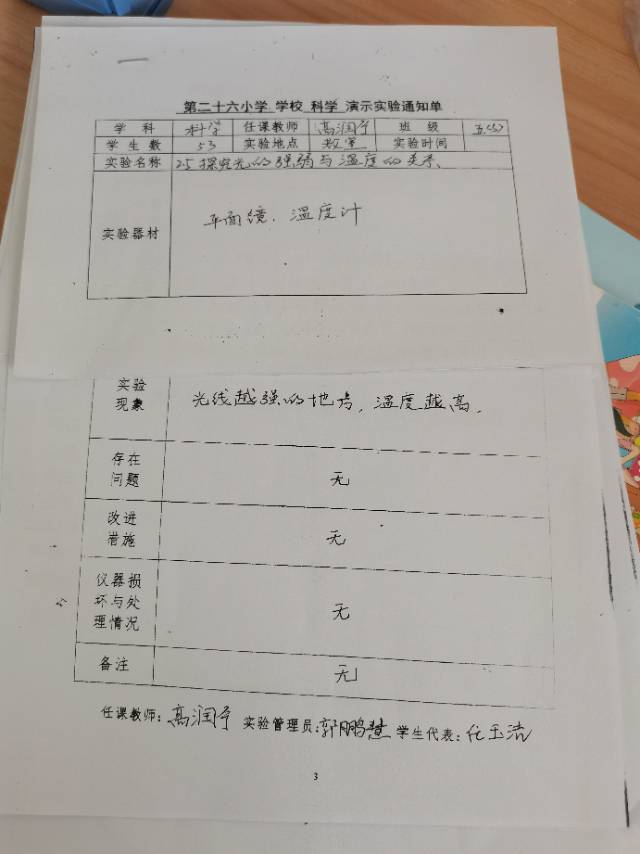 第二十六小学 学校 科学 演示实验通知单
学 科 科学 任课教师 高润宁 班 级 五(5)
学 生 数 53 实验地点 教室 实验时间
实验名称 25探究光的强弱与温度的关系、
实验器材 平面镜、温度计
实验现象 光线越强的地方，温度越高.
存在问题 无
改进措施 无
仪器损坏与处理情况 无
备注 无
任课教师：高润宁 实验管理员：郭鹏慧 学生代表：任玉洁
3